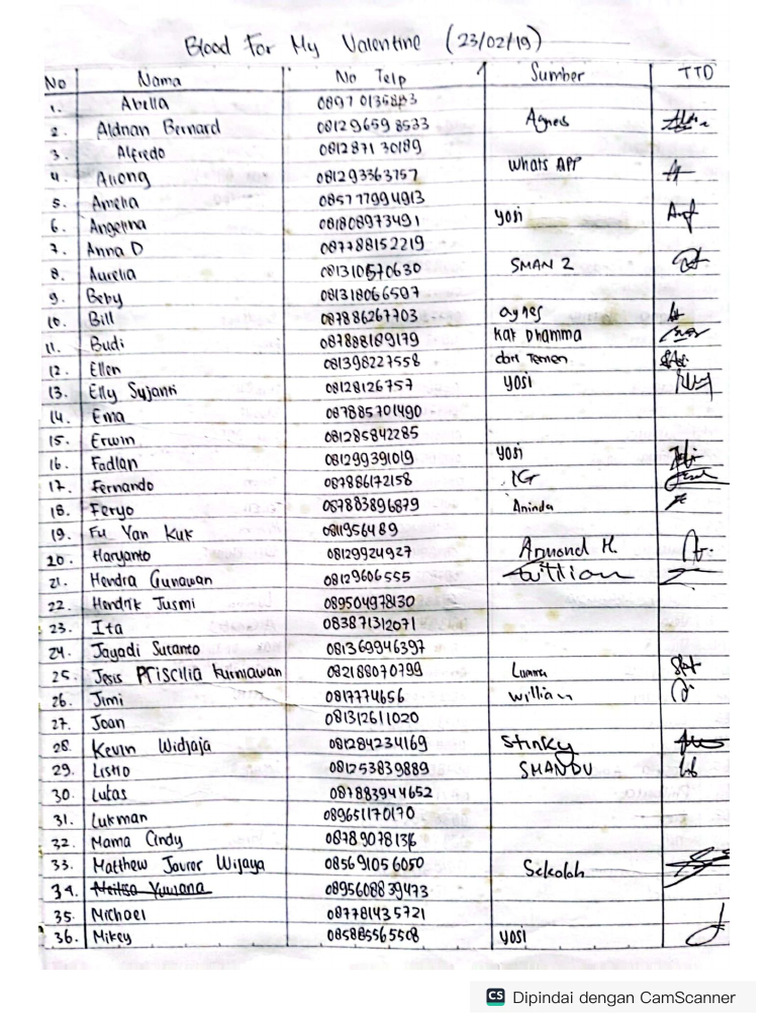 Blood For My Valentine (23/02/19)
No Nama No Telp Sumber TTD
1. Abella
2. Aldnan Bernard 08129659 8533 Agnes
3. Alfredo 0812871 30189
4. Aliong 081293363757 Whats APP
5. Amelia 085777994913
6. Angelina 081808973491 yosi
7. Anna D 087788152219
8. Aurelia 081310570630 SMAN 2
9. Beby 081318066597
10. Bill 087886267703 agnes
11. Budi 087888189179 Kak Dhamma
12. Ellen 081398227558 dari Temen
13. Elly Sujanti 08128126757 yosi
14. Ema 087885701490
15. Erwin 081285842285
16. Fadlan 081299391019 yosi
17. Fernando 087886172158 IG
18. Feryo 087883896879 Aninda
19. Fu Yan Kuk 0811956489
20. Haryanto 08129924927 Armond H.
21. Hendra Gunawan 08129606555 William
22. Hendrik Jusmi 089504978130
23. Ita 083871312071
24. Jayadi Sutanto 081369946397
25. Jesis Priscilia Kurniawan 082188070799
26. Jimi 0817774656 William
27. Joan 081312611020
28. Kevin Widjaja 081284234169 Stinky
29. Listio 081253839889 SMANDU
30. Lukas 087883944652
31. Lukman 089651170170
32. Mama Cindy
33. Matthew Javior Wijaya 08569105 6050 Sekolah
34. Meilisa Yuwana 089560883 9473
35. Michael 08778143 5721
36. Mikey 085885565508 yosi
CS Dipindai dengan CamScanner